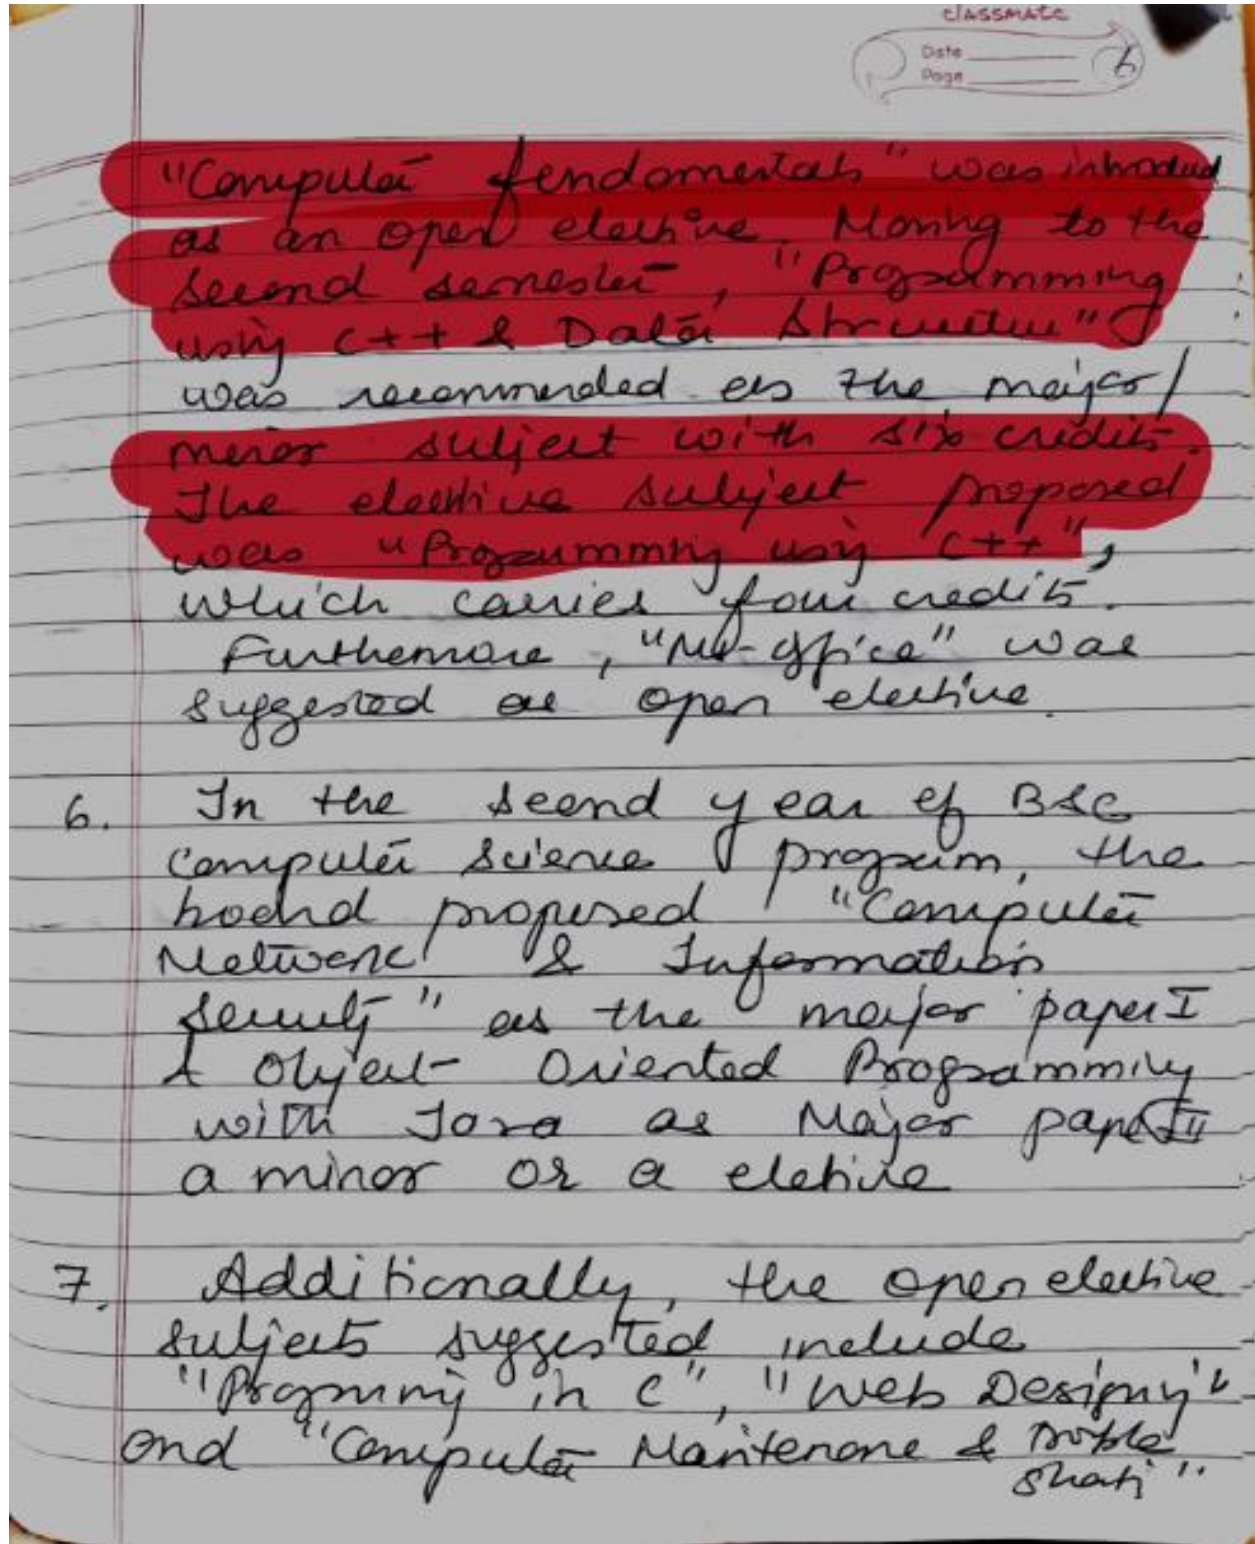 classmate
Date
Page 6
"Computer fendomentals" was introduced
as an open elective. Moving to the
second semester, "Programming
using C++ & Data Structure"
was recommended as the major/
minor subject with six credits.
The elective subject proposed
was "Programming using C++",
which carries four credits.
Furthermore, "MS-Office" was
suggested as open elective.
6. In the second year of BSc
Computer Science program, the
board proposed "Computer
Network & Information
Security" as the major paper I
& Object-Oriented Programming
with Java as Major paper II
a minor or a elective
7. Additionally, the open elective
subjects suggested include
"Programing in C", "Web Designing"
and "Computer Maintenance & Trouble
shooti"